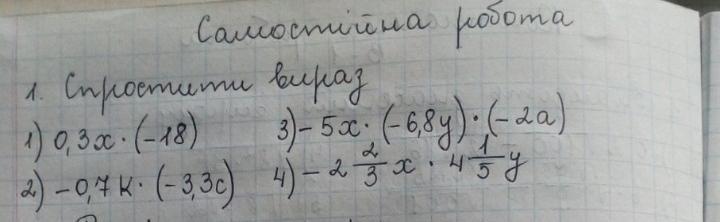 Самостійна робота
1. Спростити вираз
1) 0,3x · (-18) 3) - 5x · (-6,8y) · (-2a)
2) -0,7k · (-3,3c) 4) - 2 2/3 x · 4 1/5 y